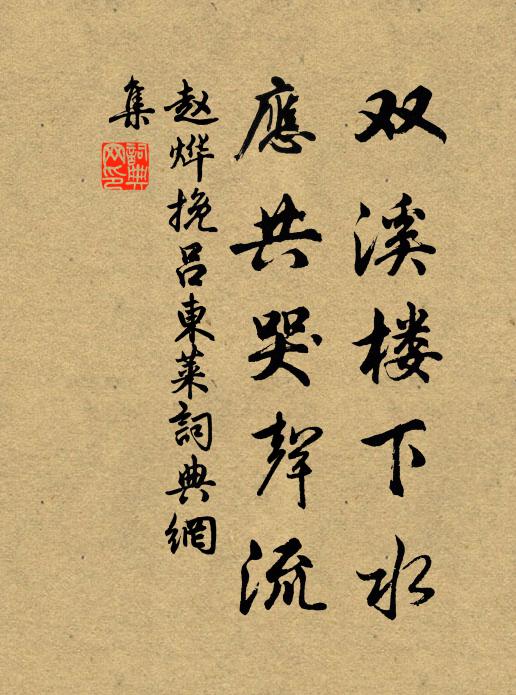 双溪楼下水
應共哭聲流
赵烨挽吕東莱詞典網
集
詞典
网印